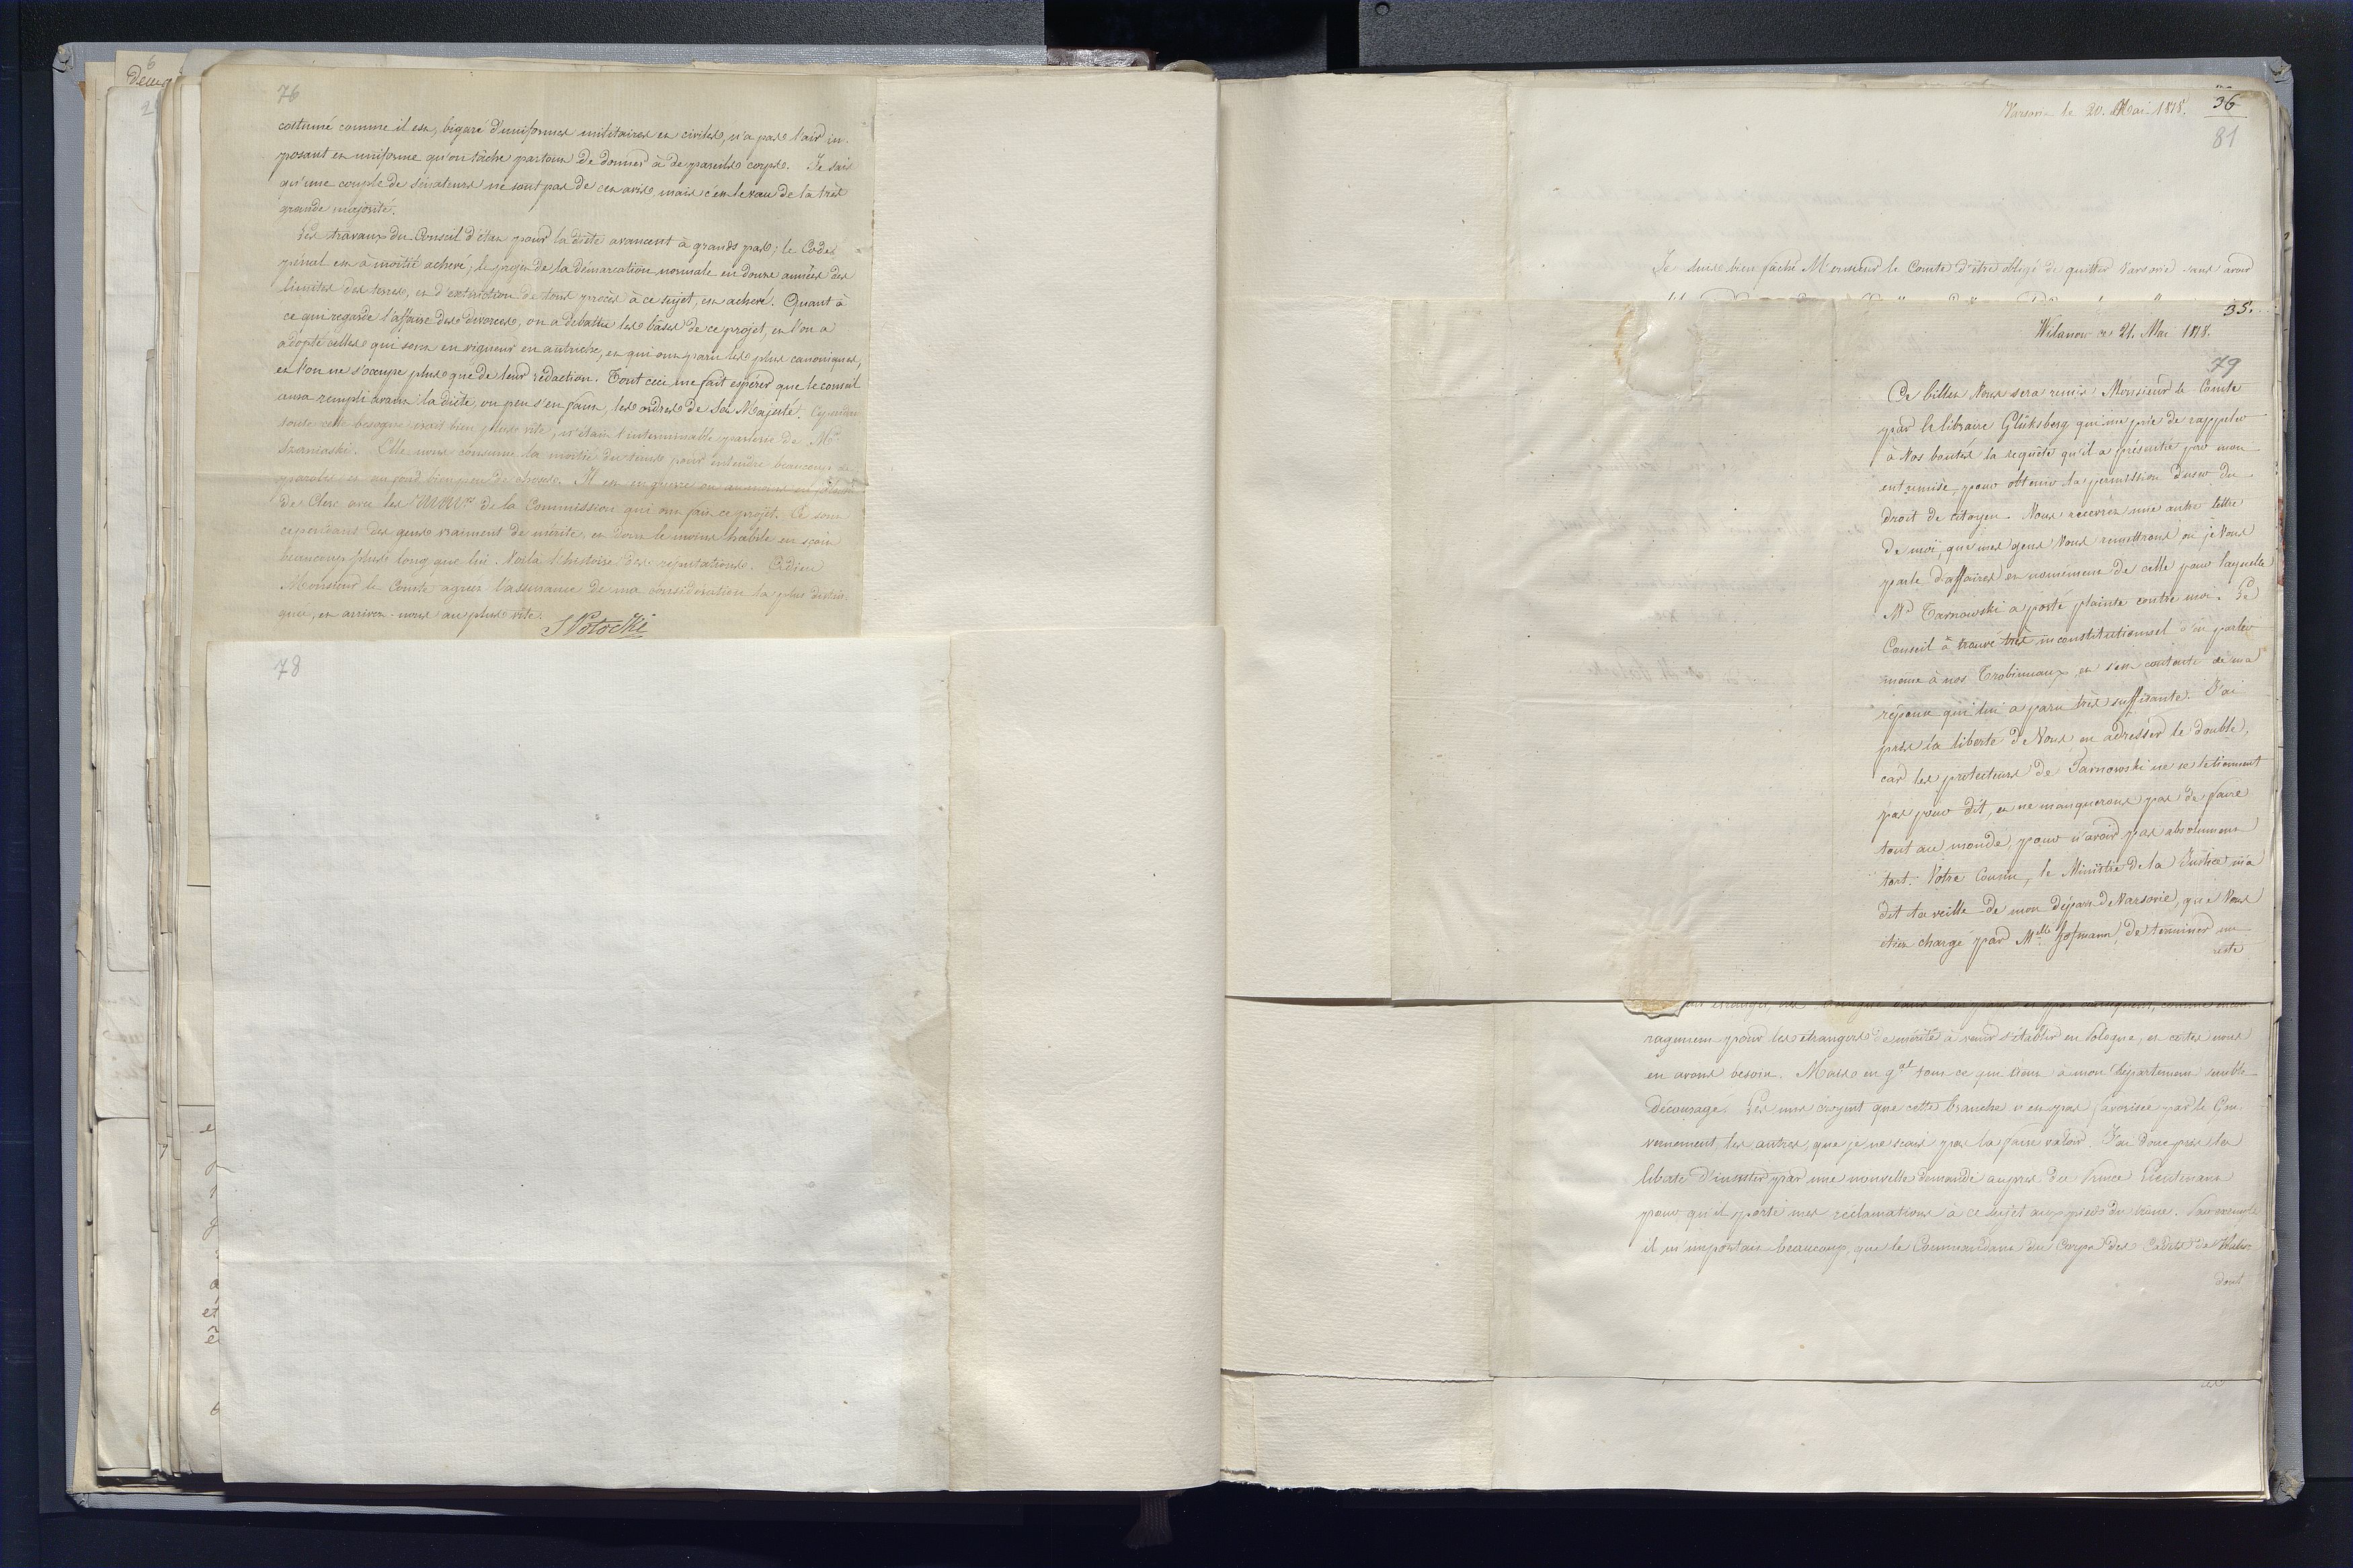 76
costumé comme il est, bigaré d'uniformes militaires et civiles, n'a pas l'air im-
posant et uniforme qu'on tâche partout de donner à de pareils corps. Je sais
qu'une couple de sénateurs ne sont pas de cet avis, mais c'est le vœu de la très
grande majorité.
Les travaux du Conseil d'état pour la diète avancent à grands pas; le Code
pénal est à moitié achevé; le projet de la démarcation normale en douze années des
limites des terres, et d'extinction de tout procès à ce sujet, est achevé. Quant à
ce qui regarde l'affaire des divorces, on a debattu les bâses de ce projet, et l'on a
adopté celles qui sont en vigueur en autriche, et qui ont paru les plus canoniques,
et l'on ne s'occupe plus que de leur rédaction. Tout ceci me fait espérer que le conseil
aura rempli avant la diète, ou peu s'en faut, les ordres de Sa Majesté. Cependant
toute cette besogne iroit bien plus vite, n'était l'interminable parlerie de Mr
Szaniaski. Elle nous consume la moitié du tems pour entendre beaucoup de
paroles et au fond bien peu de choses. Il est en guerre ou au moins en
de Clerc avec les MMrs de la Commission qui ont fait ce projet. Ce sont
cependant des gens vraiment de mérite, et dont le moins habile en sçait
beaucoup plus long que lui. Voilà l'histoire des réputations. Adieu
Monsieur le Comte agréez l'assurance de ma considération la plus distin-
guée, et arrivez-nous au plus vite.
S Potocki
78
36
Varsovie le 20. Mai 1818.
81
Je suis bien faché Monsieur le Comte d'être obligé de quitter Varsovie sans avoir
35.
Wilanow ce 21. Mai 1818.
79
Ce billet Vous sera remis Monsieur le Comte
par le libraire Glüksberg qui me prie de rappeler
à Vos bontés la requête qu'il a présentée par mon
entremise, pour obtenir la permission d'user du
droit de citoyen. Vous recevrez une autre lettre
de moi, que mes gens Vous remettront où je Vous
parle d'affaires et nomément de celle pour laquelle
Mr Tarnowski a porté plainte contre moi. Le
Conseil a trouvé très inconstitutionnel d'en parler
même à nos Trobinnaux, et s'est contenté de ma
réponse qui lui a paru très suffisante. J'ai
pris la liberté de Vous en adresser le double,
car les protecteurs de Tarnowski ne se tiennent
pas pour dit, et ne manqueront pas de faire
tout au monde, pour n'avoir pas absolument
tort. Votre Cousin, le Ministre de la Justice m'a
dit la veille de mon départ de Varsovie, que Vous
étiez chargé par Melle Hofmann, de terminer un
reste
ragement pour les étrangers de mérite à venir s'établir en Pologne, et certes nous
en avons besoin. Mais en gal tout ce qui tient à mon département semble
découragé. Les uns croyent que cette branche n'est pas favorisée par le Gou-
vernement, les autres, que je ne scais pas la faire valoir. J'ai donc pris la
liberté d'insister par une nouvelle demande auprès du Prince Lieutenant
pour qu'il porte mes réclamations à ce sujet aux pieds du trône. Par exemple
il m'importait beaucoup, que le Commandant du Corps des Cadets de Kalisz
dont